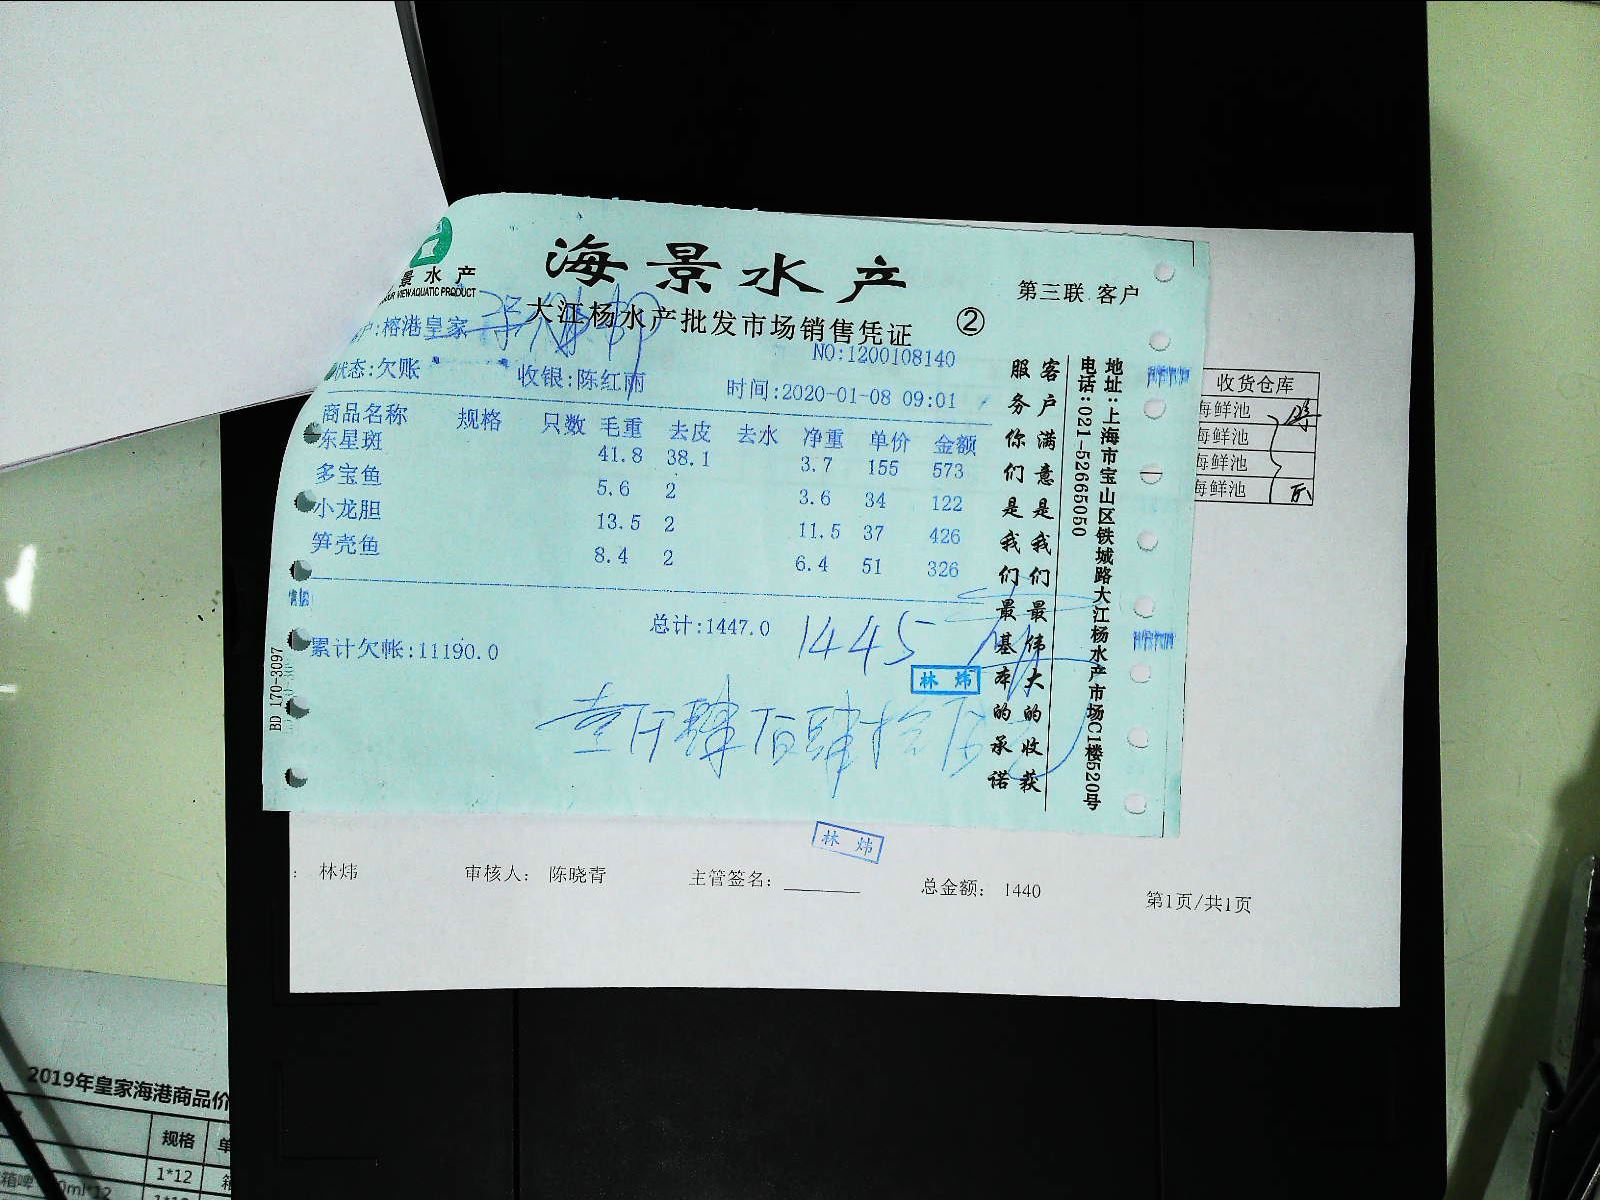 景水产
VIEW AQUATIC PRODUCT
海景水产
大江杨水产批发市场销售凭证
②
第三联 客户
户:榕港皇家
NO:1200108140
状态:欠账 收银:陈红丽 时间:2020-01-08 09:01
商品名称 规格 只数 毛重 去皮 去水 净重 单价 金额
东星斑 41.8 38.1 3.7 155 573
多宝鱼 5.6 2 3.6 34 122
小龙胆 13.5 2 11.5 37 426
笋壳鱼 8.4 2 6.4 51 326
总计:1447.0
1445
累计欠帐:11190.0
林炜
壹仟肆佰肆拾伍元
客户满意是我们最伟大的收获
服务你们是我们最基本的承诺
地址:上海市宝山区铁城路大江杨水产市场C1楼520号
电话:021-52665050
BD 170-3097
收货仓库
海鲜池
海鲜池
海鲜池
海鲜池
林炜
: 林炜 审核人: 陈晓青 主管签名: 总金额: 1440
第1页/共1页
2019年皇家海港商品价
规格 单
1*12 箱
箱啤 0ml*12